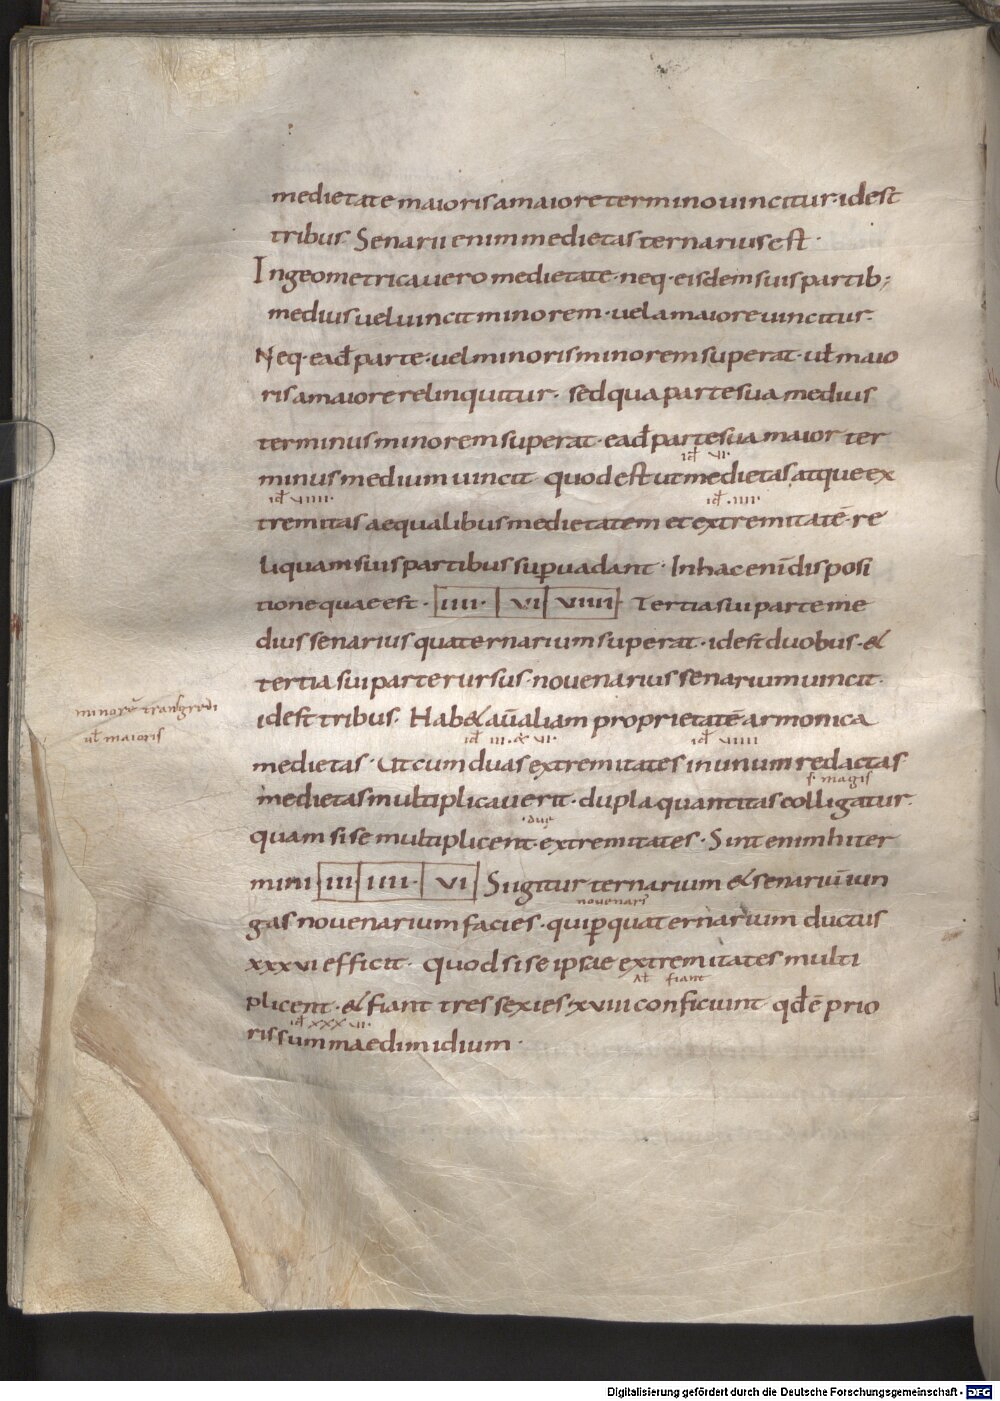 medietate maioris amaiore termino uincitur· idest
tribus· Senarii enim medietas ternarius est·
In geometrica uero medietate· neq· eisdem suis partib;
medius uel uincit minorem· uel amaiore uincitur·
Neq· ead̄ parte· uel minoris minorem superat· ul̄ maio
ris amaiore relinquitur· sed qua parte sua medius
terminus minorem superat· ead̄ parte sua maior ter
id̄ vi·
minus medium uincit quod est ut medietas atque ex
id̄ viiii· id̄ ·iiii·
tremitas aequalibus medietatem et extremitatē· re
liquam suis partibus sup̄uadant· In hac enī disposi
tione quae est· iiii· vi viiii Tertia sui parte me
dius senarius quaternarium superat· idest duobus· &
tertia sui parte rursus· nouenarius senarium uincit·
minorē transgredi
ul̄ maioris
idest tribus· Hab& aūaliam proprietatē armonica
id̄ iii· & vi· id̄ viiii
medietas· Ut cum duas extremitates in unum redactas
s· magis
medietas multiplicauerit· dupla quantitas colligatur·
·due
quam si se multiplicent extremitates· Sint enim hi ter
mini iii iiii· vi Si igitur ternarium & senariū iun
nouenari᾽
gas nouenarium facies· qui p̄ quaternarium ductus
xxxvi efficit· Quod si se ipsae extremitates multi
ul̄ fiant
plicent· & fiant tres sexies· xviii conficiunt· qd̄ ē prio
id̄ xxx vi·
ris summae dimidium·
Digitalisierung gefördert durch die Deutsche Forschungsgemeinschaft - DFG